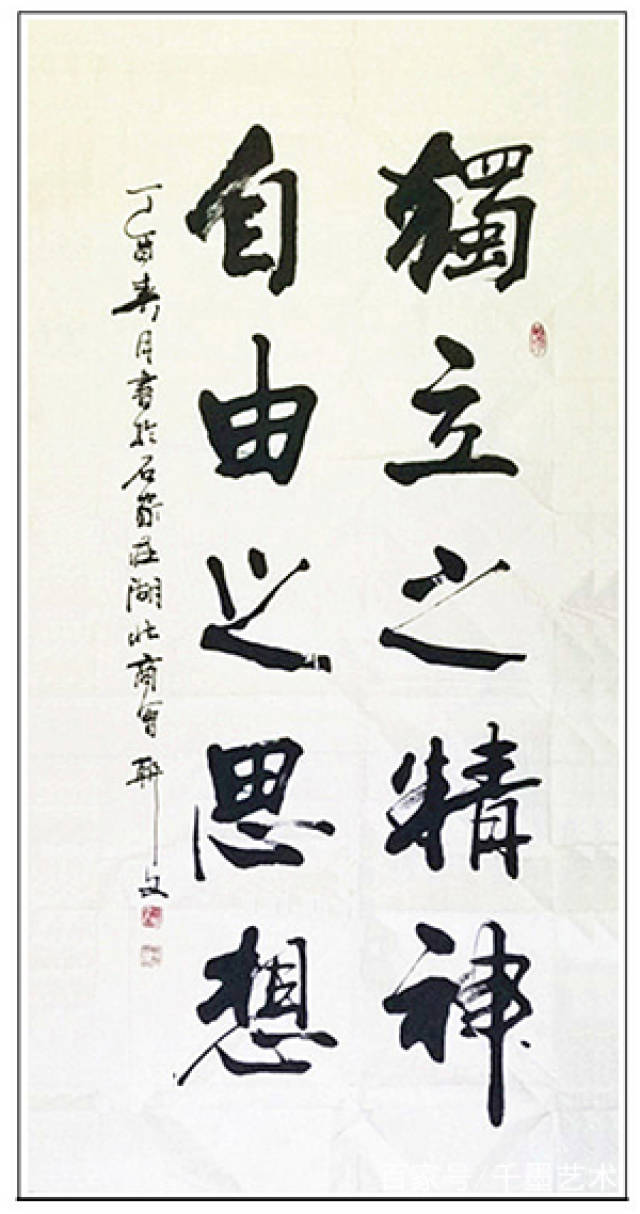 獨立之精神
自由之思想
丁酉春月書於石家莊湖北商會 聯文
百家号/千墨艺术